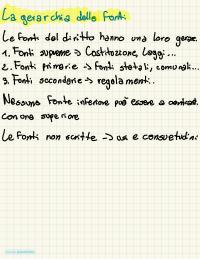 La gerarchia delle fonti
Le fonti del diritto hanno una loro gerar.
1. Fonti supreme -> Costituzione, Leggi...
2. Fonti primarie -> fonti statali, comunali...
3. Fonti secondarie -> regolamenti..
Nessuna fonte inferiore può essere a contrasto
con una superiore
Le fonti non scritte -> usi e consuetudini